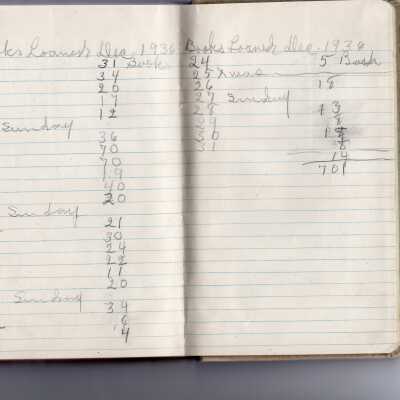 ks Loaned Dec. 1936
31 Books
34
20
17
12
Sunday
36
70
70
19
40
20
Sunday
21
30
24
22
11
20
Sunday
34
6
4
Books Loaned Dec. 1936
24 5 Book
25 Xmas
26 18
27 Sunday
28 13
29 8
30
31 8
14
701